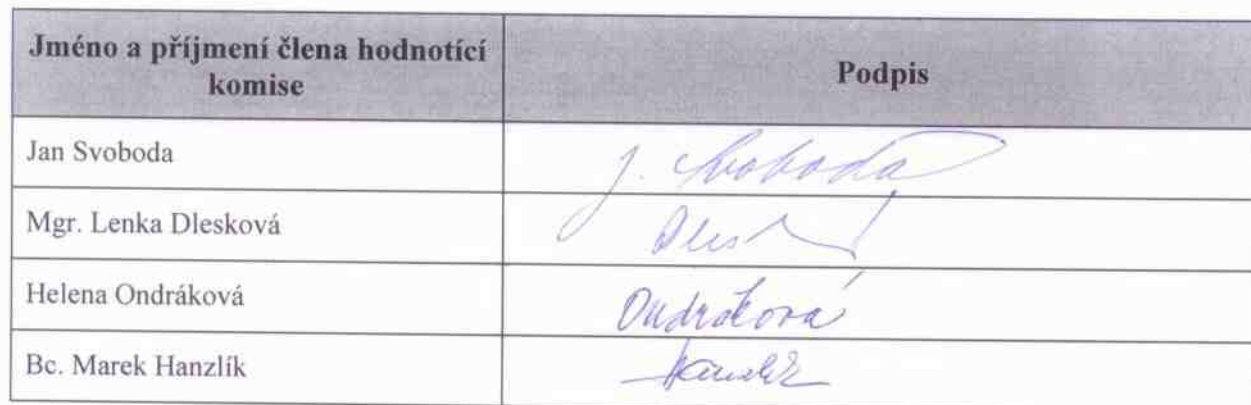 Jméno a příjmení člena hodnotící
komise
Podpis
Jan Svoboda
J. Svoboda
Mgr. Lenka Dlesková
Helena Ondráková
Ondráková
Bc. Marek Hanzlík